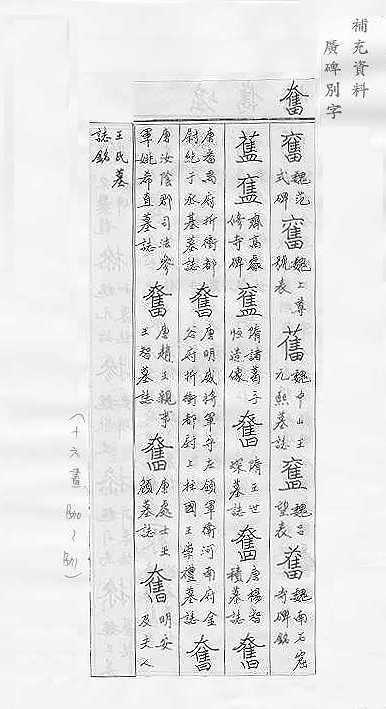 補充資料
廣碑別字
奮
奮魏范式碑奮魏上尊號表舊魏中山王元熙墓誌奮魏呂望表奮魏南石窟寺碑銘
奮齊高叡修寺碑奮隋諸葛子恒造像奮隋王世琛墓誌奮唐楊智積墓誌奮
唐番禺府折衝都尉紇于丞基墓誌奮唐明威將軍守左領軍衛河南府金谷府折衝都尉上柱國王崇禮墓誌奮
唐汝陰郡司法參軍姚希直墓誌奮唐趙王親事王智墓誌奮唐處士王顏墓誌奮明安及夫人
王氏墓誌銘
(十六畫